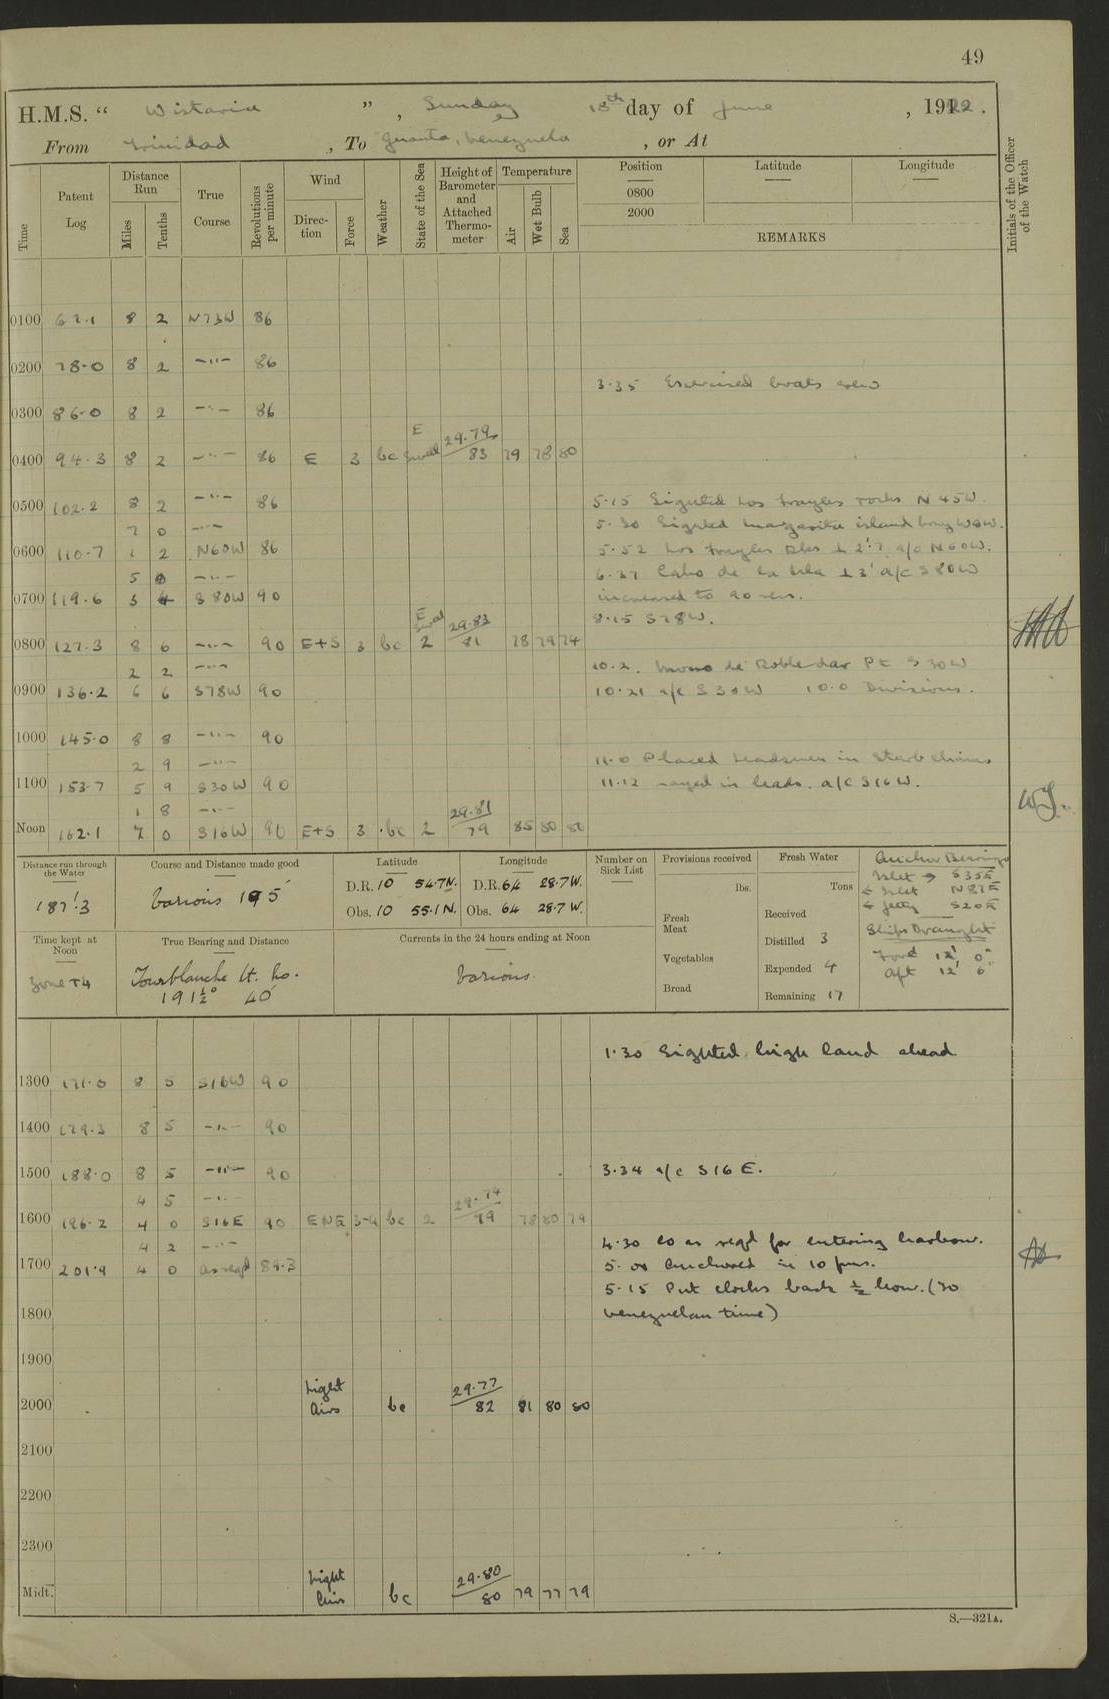 49
H.M.S. “ Wistaria ” , Sunday 18th day of June , 1922.
From Trinidad , To Guanta, Venezuela , or At
Time Patent Log Distance Run Miles Tenths True Course Revolutions per minute Wind Direc-tion Force Weather State of the Sea Height of Barometer and Attached Thermo-meter Temperature Air Wet Bulb Sea Position Latitude Longitude Initials of the Officer of the Watch
0800
2000
REMARKS
0100 8 2 N73W 86
0200 78·0 8 2 —"— 86
3·35 Exercised boats crew
0300 86·0 8 2 —"— 86
0400 94·3 8 2 —"— 86 E 3 bc E Swell 29·79 83 79 78 80
0500 102·2 8 2 —"— 86 5·15 Sighted Los Frayles rocks N45W.
7 0 —"— 5·30 Sighted Margarita island
0600 110·7 1 2 N60W 86 5·52 Los Frayles ⊥ 2'·7 a/c N60W.
5 —"— 6·37 Cabo de la Isla ⊥ 3' a/c S80W
0700 119·6 3 4 S80W 90 increased to 90 revs.
8·15 S78W.
0800 127·3 8 6 —"— 90 E+S 3 bc E Swell 2 29·83 81 78 79 74
2 2 —"— 10·2. Morro de Robledar Pt S30W
0900 136·2 6 6 S78W 90 10·21 a/c S30W 10·0 Divisions.
1000 145·0 8 8 —"— 90
2 9 —"— 11·0 Placed Leadsmen in Starbd chains
1100 153·7 5 9 S30W 90 11·12 leads. a/c S16W.
1 8 —"—
Noon 162·1 7 0 S16W 90 E+S 3 bc 2 29·81 79 85 80 80
Distance run through the Water
187'·3
Course and Distance made good
Various 195'
Latitude
D.R. 10 54·7N.
Obs. 10 55·1N.
Longitude
D.R. 64 28·7W.
Obs. 64 28·7W.
Number on Sick List
Provisions received
lbs.
Fresh Meat
Vegetables
Bread
Fresh Water
Tons
Received
Distilled 3
Expended 4
Remaining 17
Anchor Bearings
Islet → S35E
← Islet N87E
← Jetty S20E
Ships Draught
Ford 12' 0"
Aft 12' 6"
Time kept at Noon
Zone +4
True Bearing and Distance
Fourblanche Lt. Ho.
191½° 40'
Currents in the 24 hours ending at Noon
Various.
1·30 Sighted high land ahead
1300 171·0 8 5 S16W 90
1400 179·3 8 5 —"— 90
1500 188·0 8 5 —"— 90 3·34 a/c S16E.
4 5 —"—
1600 196·2 4 0 S16E 90 ENE 3-4 bc 2 29·74 79 78 80 79
4 2 —"— 4·30 Co as reqd for entering harbour.
1700 201·9 4 0 as reqd 84·3 5·01 Anchored in 10 fms.
5·15 Put clocks back ½ hour. (To
1800 Venezuelan time)
1900
2000 Light Airs bc 29·77 82 81 80 80
2100
2200
2300
Midt. Light Airs bc 29·80 80 79 77 79
S.—321A.